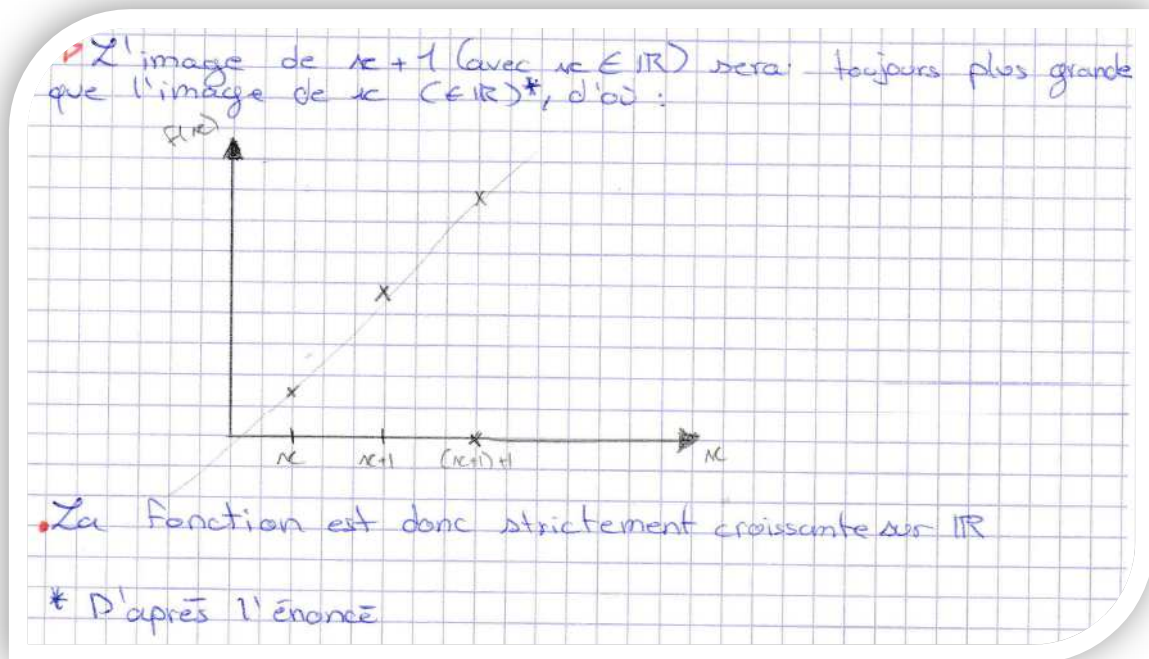 L'image de x + 1 (avec x ∈ IR) sera toujours plus grande
que l'image de x (∈ IR)*, d'où :
f(x)
x x+1 (x+1)+1 x
La fonction est donc strictement croissante sur IR
* D'après l'énoncé